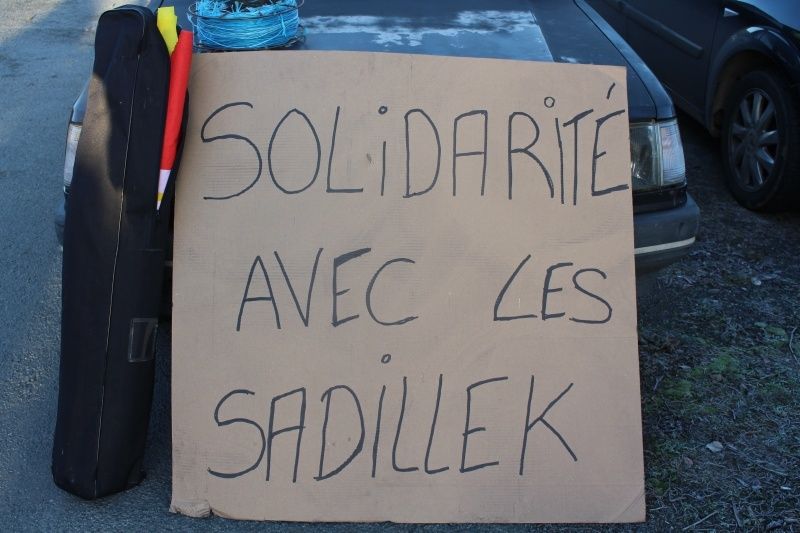 SOLiDARiTÉ
AVEC LES
SADiLLEK